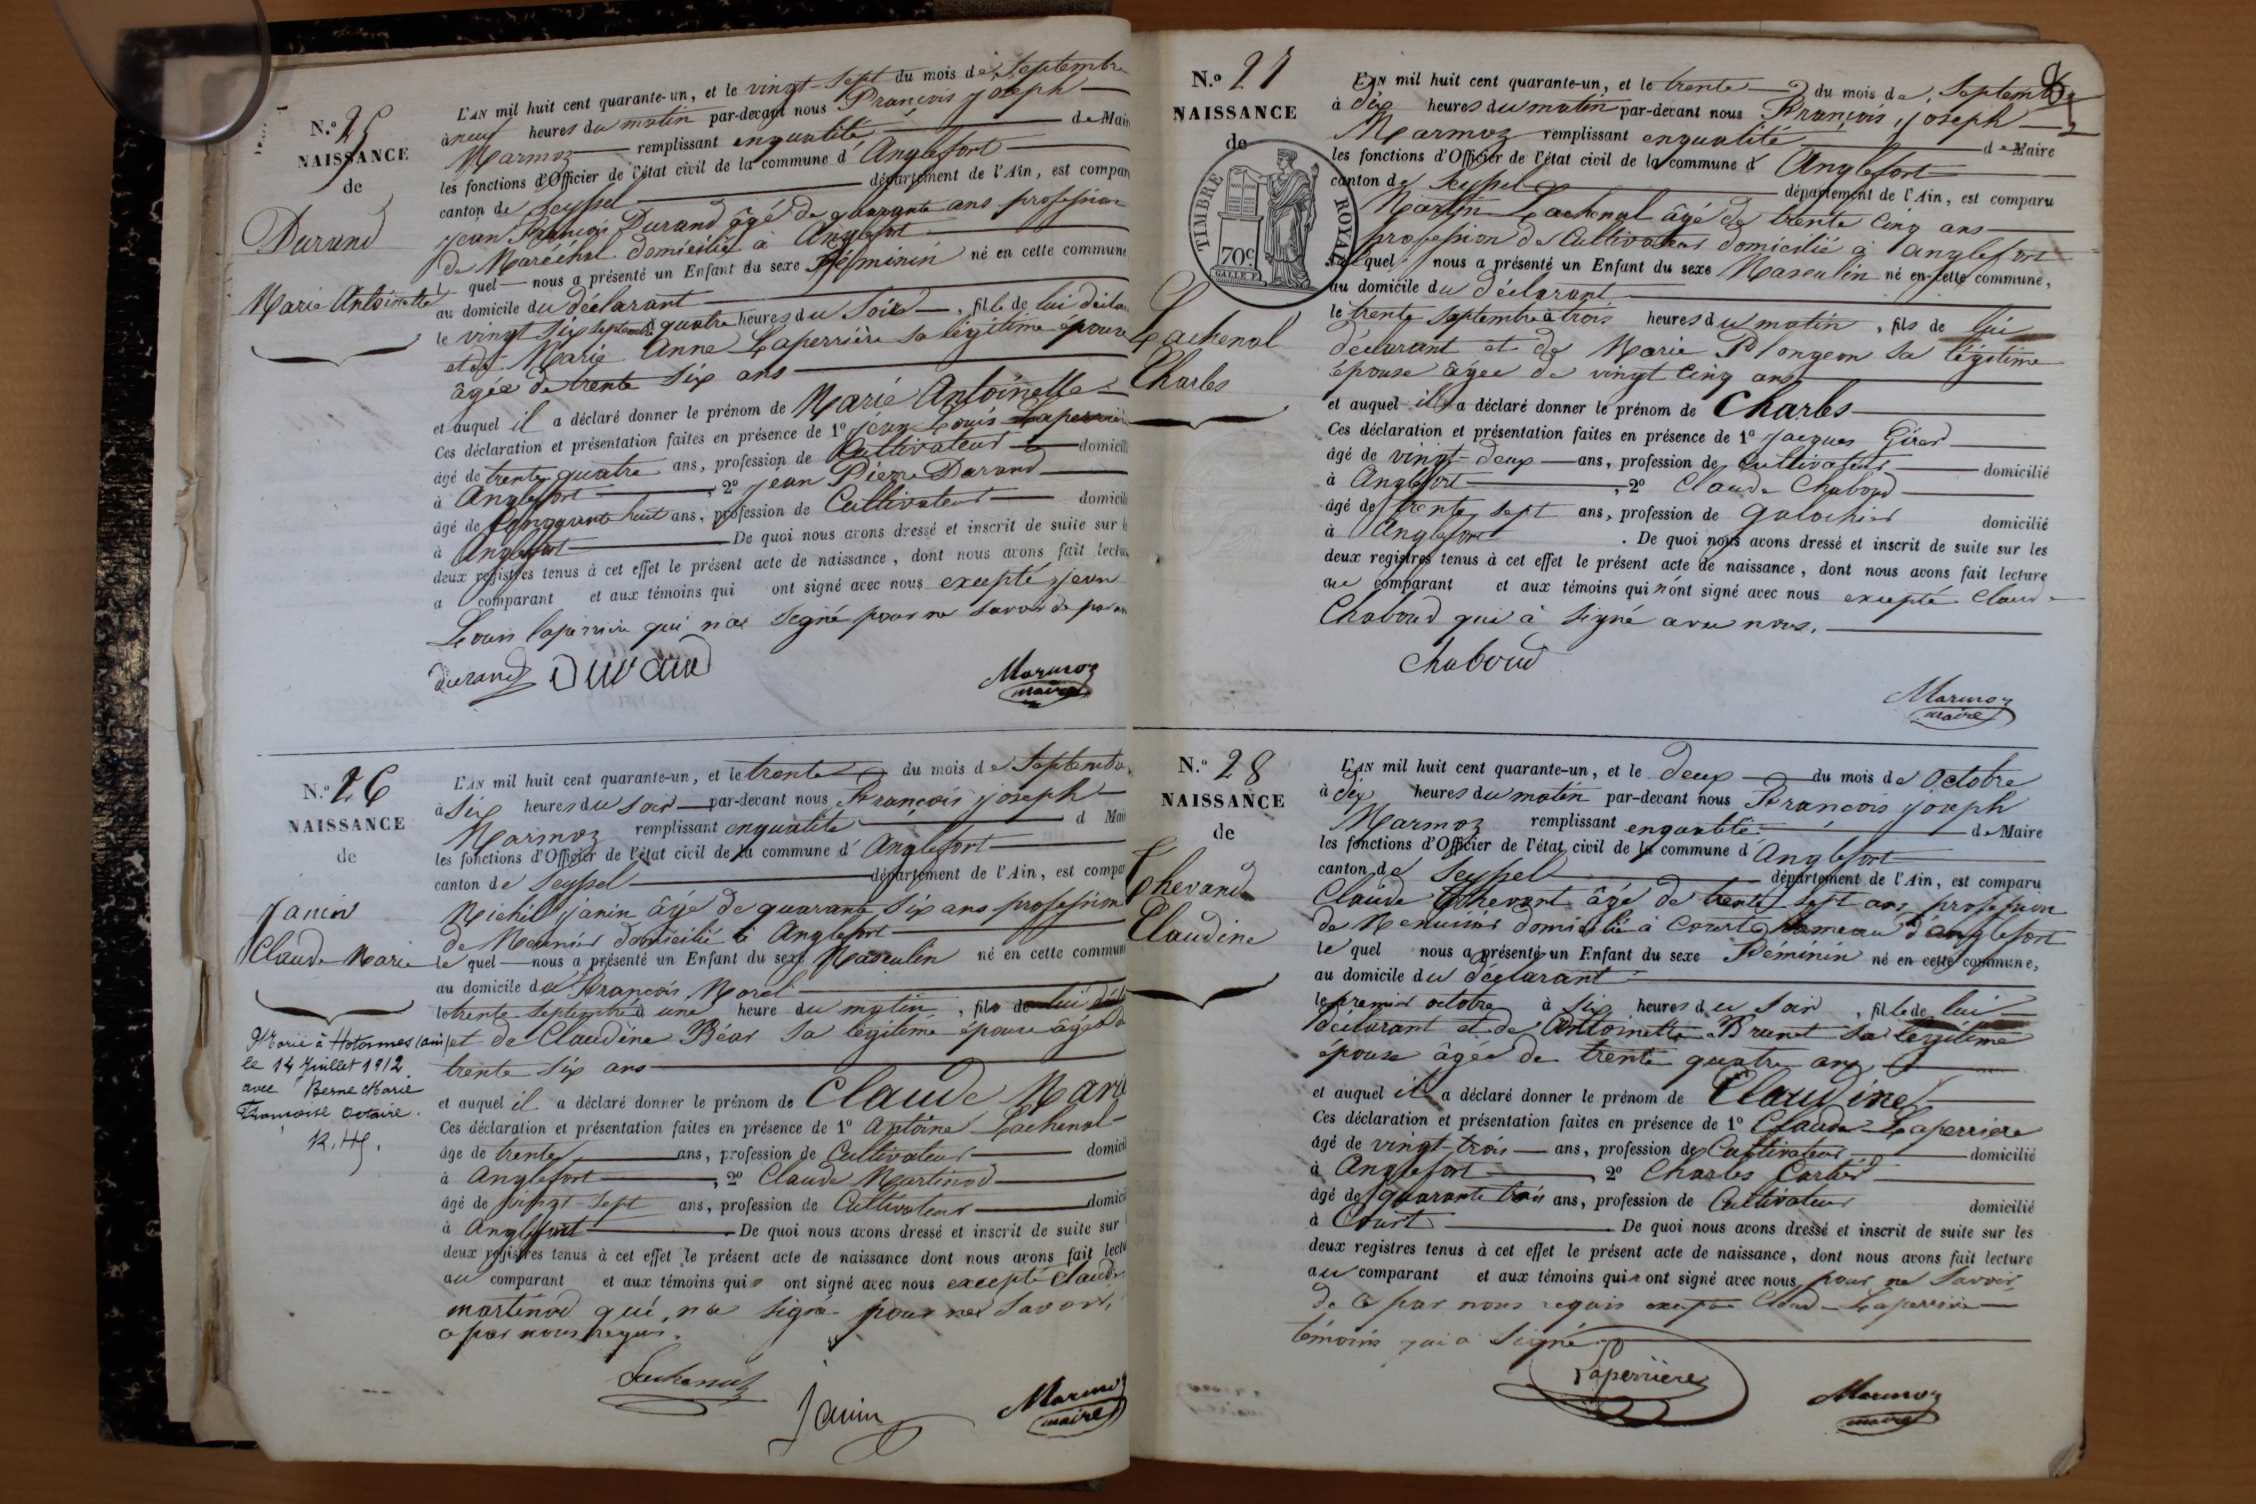 N.o 25
NAISSANCE
de
Durand
Marie Antoinette
L'AN mil huit cent quarante-un, et le vingt-sept du mois de Septembre
à neuf heures du matin par-devant nous François joseph
Marmoz remplissant enqualité de Mair
les fonctions d'Officier de l'état civil de la commune d'Anglefort
canton de Seyssel département de l'Ain, est compar
jean François Durand âgé de quarante ans profession
de Maréchal domicilié à Anglefort
l quel nous a présenté un Enfant du sexe Féminin né en cette commune
au domicile du déclarant
le vingt six septembre à quatre heures du Soir, fille de lui décla
et de Marie Anne Laperrière sa légitime épouse
âgée de trente six ans
et auquel il a déclaré donner le prénom de Marie Antoinette
Ces déclaration et présentation faites en présence de 1º jean Louis Laperrièr
âgé de trente quatre ans, profession de Cultivateur domicili
à Anglefort, 2º jean Pierre Durand
âgé de Cinquante huit ans, profession de Cultivateur domicili
à Anglefort De quoi nous avons dressé et inscrit de suite sur l
deux registres tenus à cet effet le présent acte de naissance, dont nous avons fait lectu
a comparant et aux témoins qui ont signé avec nous excepté jean
Louis laperrière qui n'a signé pour ne savoir de par
durand Durand
Marmoz
maire
N.o 26
NAISSANCE
de
Janin
Claude Marie
Marié à Hotonnes (ain)
le 14 Juillet 1912
avec Berne Marie
Françoise Octavie.
L'AN mil huit cent quarante-un, et le trente du mois de Septembre
à Six heures du soir par-devant nous François joseph
Marmoz remplissant enqualité d Mai
les fonctions d'Officier de l'état civil de la commune d'Anglefort
canton de Seyssel département de l'Ain, est compar
Michel janin âgé de quarante six ans profession
de Meunier domicilié à Anglefort
le quel nous a présenté un Enfant du sexe Masculin né en cette commun
au domicile de François Morel
le trente septembre à une heure du matin, fils de lui décl
et de Claudine Béar sa légitime épouse âgée de
trente six ans
et auquel il a déclaré donner le prénom de Claude Marie
Ces déclaration et présentation faites en présence de 1º Antoine Lachenal
âge de trente ans, profession de Cultivateur domicil
à Anglefort, 2º Claude Martinod
âgé de vingt-sept ans, profession de Cultivateur domici
à Anglefort De quoi nous avons dressé et inscrit de suite sur
deux registres tenus à cet effet le présent acte de naissance dont nous avons fait lectu
au comparant et aux témoins qui ont signé avec nous excepté Claude
martinod qui n'a signé pour ne savoir,
a par nous requis.
Lachenal
Janin
Marmoz
maire
N.o 27
NAISSANCE
de
TIMBRE ROYAL
70c.
Lachenal
Charles
L'AN mil huit cent quarante-un, et le trente du mois de Septembre
à dix heures du matin par-devant nous François joseph
Marmoz remplissant enqualité de Maire
les fonctions d'Officier de l'état civil de la commune d'Anglefort
canton de Seyssel département de l'Ain, est comparu
Martin Lachenal âgé de trente cinq ans
profession de Cultivateur domicilié à anglefort
le quel nous a présenté un Enfant du sexe Masculin né en cette commune,
au domicile du déclarant
le trente septembre à trois heures du matin, fils de lui
déclarant et de Marie Plongeon sa légitime
épouse âgée de vingt cinq ans
et auquel il a déclaré donner le prénom de Charles
Ces déclaration et présentation faites en présence de 1º jacques Girod
âgé de vingt-deux ans, profession de Cultivateur domicilié
à Anglefort, 2º Claude Chaboud
âgé de trente sept ans, profession de galochier domicilié
à Anglefort. De quoi nous avons dressé et inscrit de suite sur les
deux registres tenus à cet effet le présent acte de naissance, dont nous avons fait lecture
au comparant et aux témoins qui n'ont signé avec nous excepté Claude
Chaboud qui à signé avec nous.
Chaboud
Marmoz
maire
N.o 28
NAISSANCE
de
Thevand
Claudine
L'AN mil huit cent quarante-un, et le deux du mois de Octobre
à dix heures du matin par-devant nous François joseph
Marmoz remplissant enqualité de Maire
les fonctions d'Officier de l'état civil de la commune d'Anglefort
canton de Seyssel département de l'Ain, est comparu
Claude Thevant âgé de trente sept ans profession
de Menuisier domicilié à Court hameau d'anglefort
le quel nous a présenté un Enfant du sexe Féminin né en cette commune,
au domicile du déclarant
le premier octobre à six heures du soir, fille de lui
déclarant et de Antoinette Brunet sa légitime
épouse âgée de trente quatre ans
et auquel il a déclaré donner le prénom de Claudine
Ces déclaration et présentation faites en présence de 1º Claude Laperriere
âgé de vingt-trois ans, profession de Cultivateur domicilié
à Anglefort, 2º Charles Cartier
âgé de quarante trois ans, profession de Cultivateur domicilié
à Court De quoi nous avons dressé et inscrit de suite sur les
deux registres tenus à cet effet le présent acte de naissance, dont nous avons fait lecture
au comparant et aux témoins qui ont signé avec nous pour ne savoir
de ce par nous requis excepté Claude Laperriere
témoins qui a signé.
Laperrière
Marmoz
maire